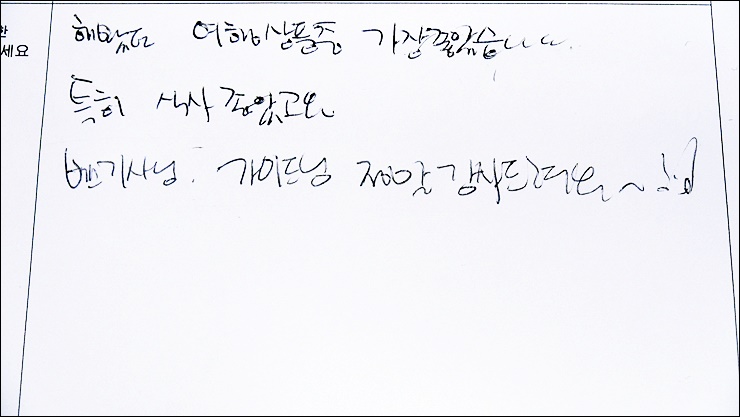 한
세요
해봤던 여행상품중 가장좋았습니다.
특히 식사 좋았고요.
버스기사님. 가이드님 정말 감사드려요~!!